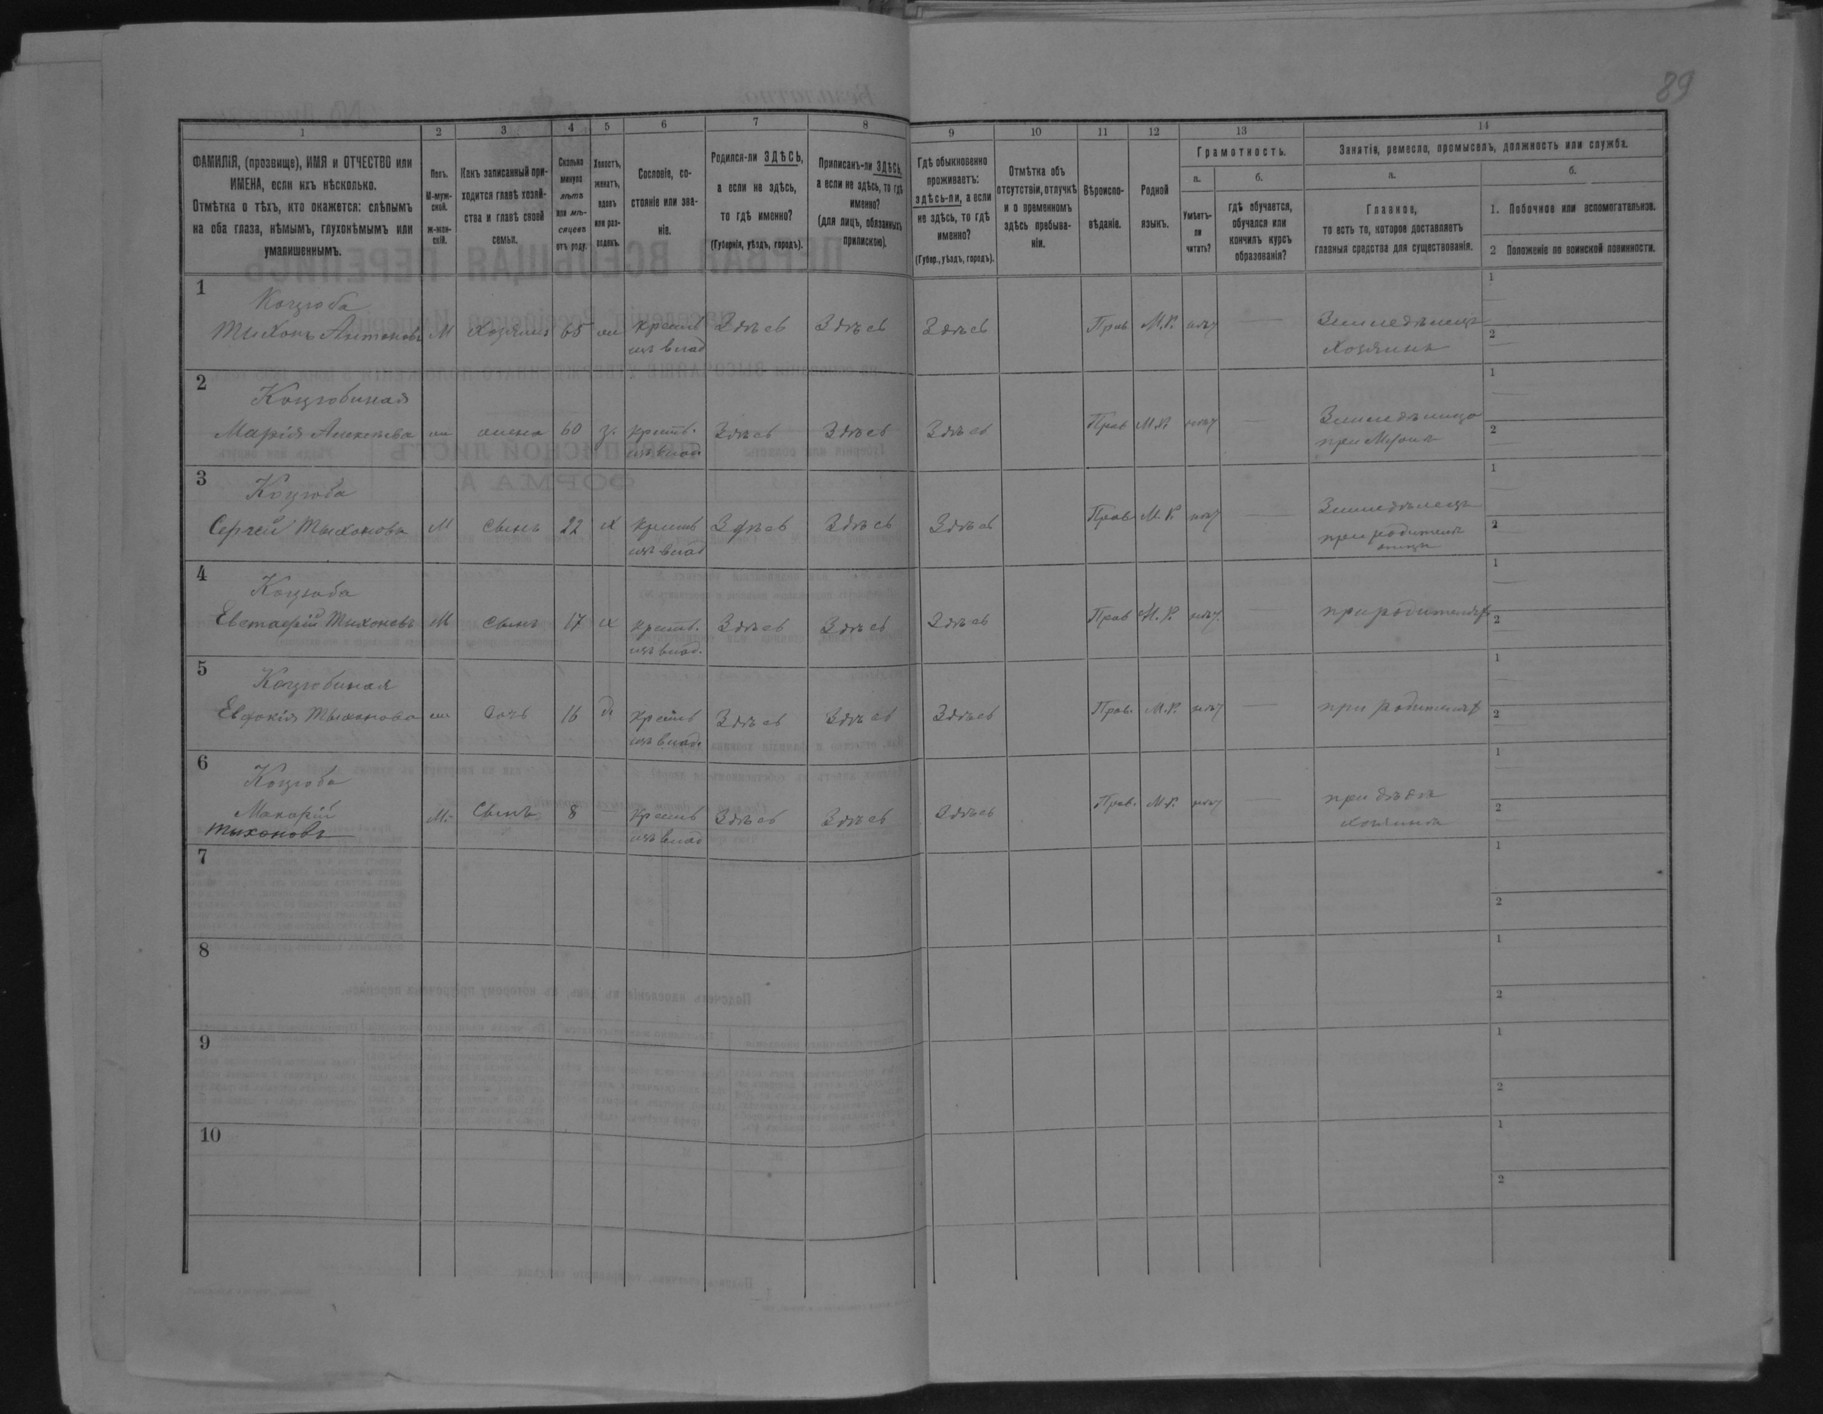 89
1 2 3 4 5 6 7 8 9 10 11 12 13 14
ФАМИЛІЯ, (прозвище), ИМЯ и ОТЧЕСТВО или
ИМЕНА, если ихъ нѣсколько.
Отмѣтка о тѣхъ, кто окажется: слѣпымъ
на оба глаза, нѣмымъ, глухонѣмымъ или
умалишеннымъ.
Полъ.
М-муж-
ской.
Ж-жен-
скій.
Какъ записанный при-
ходится главѣ хозяй-
ства и главѣ своей
семьи.
Сколько
минуло
лѣтъ
или мѣ-
сяцевъ
отъ роду.
Холостъ,
женатъ,
вдовъ
или раз-
веденъ.
Сословіе, со-
стояніе или зва-
ніе.
Родился-ли ЗДѢСЬ,
а если не здѣсь,
то гдѣ именно?
(Губернія, уѣздъ, городъ).
Приписанъ-ли ЗДѢСЬ,
а если не здѣсь, то гдѣ
именно?
(для лицъ, обязанныхъ
припискою).
Гдѣ обыкновенно
проживаетъ:
здѣсь-ли, а если
не здѣсь, то гдѣ
именно?
(Губер., уѣздъ, городъ).
Отмѣтка объ
отсутствіи, отлучкѣ
и о временномъ
здѣсь пребыва-
ніи.
Вѣроиспо-
вѣданіе.
Родной
языкъ.
Грамотность.
а.
Умѣетъ-
ли
читать?
б.
гдѣ обучается,
обучался или
кончилъ курсъ
образованія?
Занятіе, ремесло, промыселъ, должность или служба.
а.
Главное,
то есть то, которое доставляетъ
главныя средства для существованія.
б.
1. Побочное или вспомогательное.
2 Положеніе по воинской повинности.
1
Коцюба
Тыхонъ Антоновъ М Хозяинъ 65 ж крестъ Здѣсь Здѣсь Здѣсь Прав М.Р. нѣт Земледѣлецъ
изъ влад Хозяинъ
1
2
2
Коцюбиная
Марія Алексѣева ж жена 60 з. крестъ. Здѣсь Здѣсь Здѣсь Прав М.Р. нѣт
изъ влад. при Мужѣ
1
2
3
Коцюба
Сергей Тыхоновъ М сынъ 22 х крестъ Здѣсь Здѣсь Здѣсь Прав М.Р. нѣт Земледѣлецъ
изъ влад
1
2
4
Коцюба
Евстафій Тыхоновъ М сынъ 17 х крестъ. Здѣсь Здѣсь Здѣсь Прав М.Р. нѣт. при родителяхъ
изъ влад.
1
2
5
Коцюбиная
Евдокія Тыхонова ж дочь 16 д крестъ Здѣсь Здѣсь Здѣсь Прав. М.Р. нѣт при родителяхъ
изъ влад.
1
2
6
Коцюба
Макарій М. Сынъ 8 — крестъ Здѣсь Здѣсь Здѣсь Прав. М.Р. нѣт при дѣдѣ
Тыхоновъ изъ влад хозяинѣ
1
2
7
1
2
8
1
2
9
1
2
10
1
2